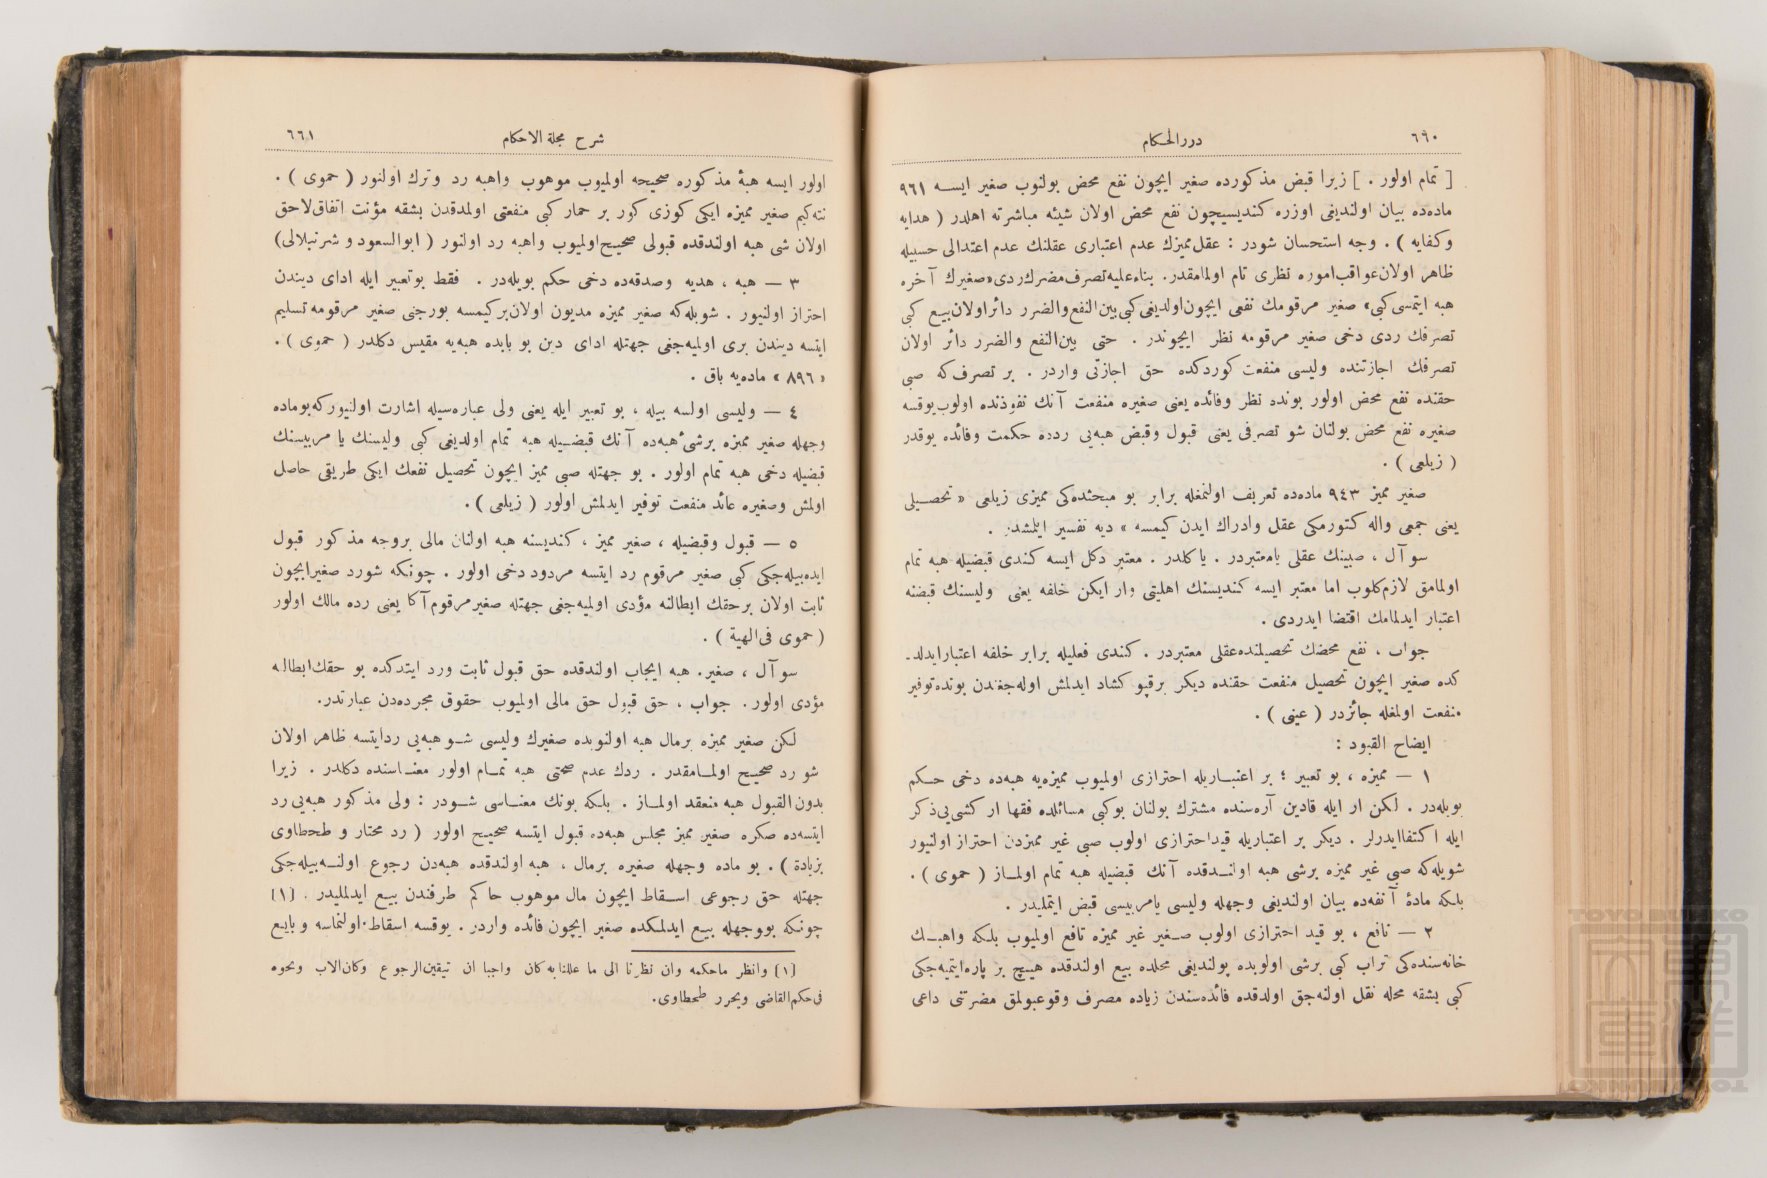 ٦٩٠
دررالحكام
[ تمام اولور . ] زيرا قبض مذكورده صغير ايچون نفع محض بولنوب صغير ايسه ٩٦١
ماده‌ده بيان اولنديغى اوزره كنديسيچون نفع محض اولان شيئه مباشرته اهلدر ( هدايه
وكفايه ) . وجه استحسان شودر : عقل مميزك عدم اعتبارى عقلنك عدم اعتدالى حسبيله
ظاهر اولان عواقب اموره نظرى تام اولمامقدر. بناءً عليه تصرف مضرك ردى «صغيرك آخره
هبه ايتمسى كبى» صغير مرقومك نفعى ايچون اولديغى كبى بين‌النفع والضرر دائر اولان بيع كبى
تصرفك ردى دخى صغير مرقومه نظر ايچوندر . حتى بين‌النفع والضرر دائر اولان
تصرفك اجازتنده وليسى منفعت كوردكده حق اجازتى واردر . بر تصرف كه صبى
حقنده نفع محض اولور بونده نظر وفائده يعنى صغيره منفعت آنك نفوذنده اولوب يوقسه
صغيره نفع محض بولنان شو تصرفى يعنى قبول وقبض هبه‌يى ردده حكمت وفائده يوقدر
( زيلعى ) .
صغير مميز ٩٤٣ ماده‌ده تعريف اولنمغله برابر بو مبحثده‌كى مميزى زيلعى « تحصيلى
يعنى جمعى واله كتورمكى عقل وادراك ايدن كيمسه » ديه تفسير ايلمشدر .
سوآل ، صبينك عقلى يا معتبردر . يا دكلدر . معتبر دكل ايسه كندى قبضيله هبه تمام
اولمامق لازم كلوب اما معتبر ايسه كنديسنك اهليتى وار ايكن خلفه يعنى وليسنك قبضنه
اعتبار ايدلمامك اقتضا ايدردى .
جواب ، نفع محضك تحصيلنده عقلى معتبردر . كندى فعليله برابر خلفه اعتبار ايدلد-
كده صغير ايچون تحصيل منفعت حقنده ديكر برقپو كشاد ايدلمش اوله‌جغندن بونده توفير
منفعت اولمغله جائزدر ( عينى ) .
ايضاح القيود :
١ — مميزه ، بو تعبير ؛ بر اعتباريله احترازى اولميوب مميزه‌يه هبه‌ده دخى حكم
بويله‌در . لكن ار ايله قادين آره‌سنده مشترك بولنان بوكبى مسائلده فقها ار كشى‌يى ذكر
ايله اكتفا ايدرلر . ديكر بر اعتباريله قيد احترازى اولوب صبى غير مميزدن احتراز اولنيور
شويله‌كه صبى غير مميزه برشى هبه اولندقده آنك قبضيله هبه تمام اولماز ( حموى ) .
بلكه مادهٔ آنفه‌ده بيان اولنديغى وجهله وليسى يا مربيسى قبض ايتمليدر .
٢ — نافع ، بو قيد احترازى اولوب صغير غير مميزه نافع اولميوب بلكه واهبك
خانه‌سنده‌كى تراب كبى برشى اولوبده بولنديغى محلده بيع اولندقده هيچ بر پاره ايتميه‌جكى
كبى بشقه محله نقل اولنه‌جق اولدقده فائده‌سندن زياده مصرف وقوعبولمق مضرتنى داعى
شرح مجلة الاحكام
٦٦١
اولور ايسه هبهٔ مذكوره صحيحه اولميوب موهوب واهبه رد وترك اولنور ( حموى ) .
نته‌كيم صغير مميزه ايكى كوزى كور بر حمار كبى منفعتى اولمدقدن بشقه مؤنت انفاق لاحق
اولان شى هبه اولندقده قبولى صحيح اولميوب واهبه رد اولنور ( ابوالسعود و شرنبلالى)
٣ — هبه ، هديه وصدقه‌ده دخى حكم بويله‌در . فقط بو تعبير ايله اداى ديندن
احتراز اولنيور . شويله‌كه صغير مميزه مديون اولان بركيمسه بورجنى صغير مرقومه تسليم
ايتسه ديندن برى اولميه‌جغى جهتله اداى دين بو بابده هبه‌يه مقيس دكلدر ( حموى ) .
« ٨٩٦ » ماده‌يه باق .
٤ — وليسى اولسه بيله ، بو تعبير ايله يعنى ولى عباره‌سيله اشارت اولنيوركه بوماده
وجهله صغير مميزه برشىٔ هبه‌ده آنك قبضيله هبه تمام اولديغى كبى وليسنك يا مربيسنك
قبضيله دخى هبه تمام اولور . بو جهتله صبى مميز ايچون تحصيل نفعك ايكى طريقى حاصل
اولمش وصغيره عائد منفعت توفير ايدلمش اولور ( زيلعى ) .
٥ — قبول وقبضيله ، صغير مميز ، كنديسنه هبه اولنان مالى بروجه مذكور قبول
ايده‌بيله‌جكى كبى صغير مرقوم رد ايتسه مردود دخى اولور . چونكه شورد صغير ايچون
ثابت اولان برحقك ابطالنه مؤدى اولميه‌جغى جهتله صغير مرقوم آكا يعنى رده مالك اولور
( حموى فى الهبة ) .
سوآل ، صغير. هبه ايجاب اولندقده حق قبول ثابت ورد ايتدكده بو حقك ابطاله
مؤدى اولور . جواب ، حق قبول حق مالى اولميوب حقوق مجرده‌دن عبارتدر.
لكن صغير مميزه برمال هبه اولنوبده صغيرك وليسى شو هبه‌يى رد ايتسه ظاهر اولان
شو رد صحيح اولمامقدر . ردك عدم صحتى هبه تمام اولور معناسنده دكلدر . زيرا
بدون القبول هبه منعقد اولماز . بلكه بونك معناسى شودر : ولى مذكور هبه‌يى رد
ايتسه‌ده صكره صغير مميز مجلس هبه‌ده قبول ايتسه صحيح اولور ( رد محتار و طحطاوى
بزيادة ) . بو ماده وجهله صغيره برمال ، هبه اولندقده هبه‌دن رجوع اولنه‌بيله‌جكى
جهتله حق رجوعى اسقاط ايچون مال موهوب حاكم طرفندن بيع ايدلمليدر . [١]
چونكه بووجهله بيع ايدلمكده صغير ايچون فائده واردر . يوقسه اسقاط اولنماسه و بايع
[١] وانظر ماحكمه وان نظرنا الى ما عللنا به كان واجبا ان تيقين الرجوع وكان الاب ونحوه
فى حكم القاضى ويحرر طحطاوى.